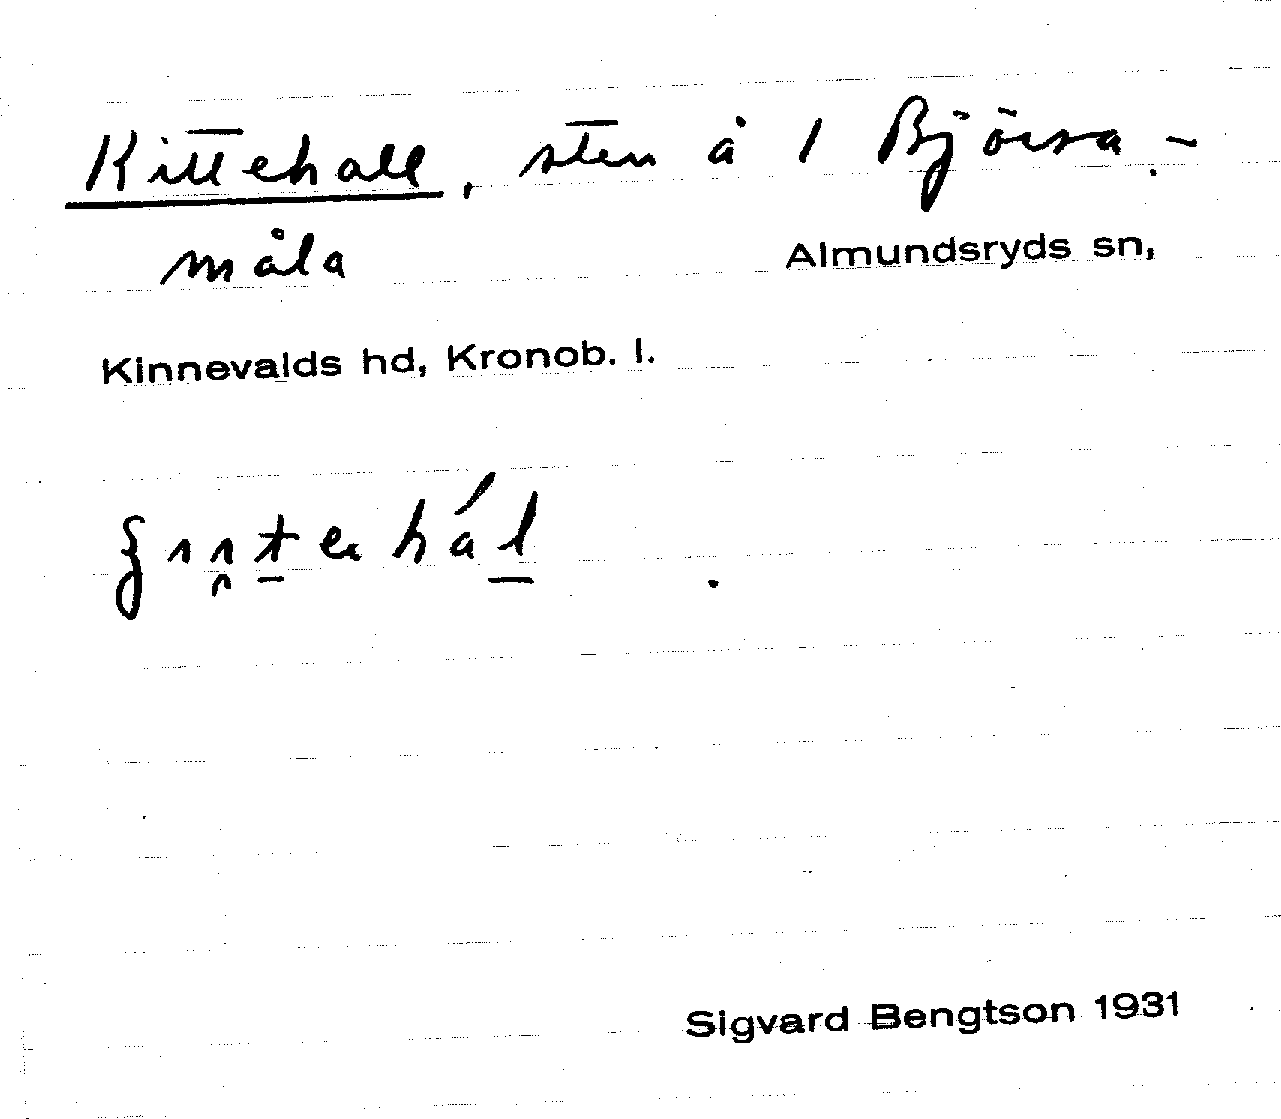 Kittehall, sten å 1 Björsa-
måla
Almundsryds sn,
Kinnevalds hd, Kronob. l.
Sigvard Bengtson 1931